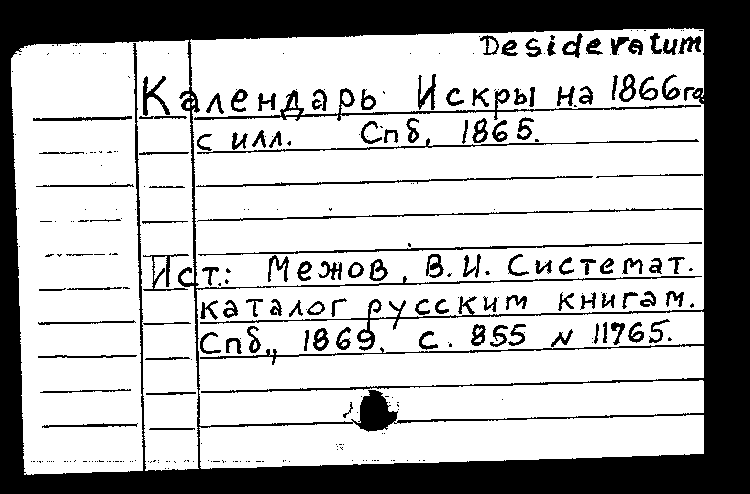 Desideratum
Календарь Искры на 1866 га
с илл. Спб, 1865.
Ист.: Межов, В.И. Системат.
каталог русским книгам.
Спб., 1869. с. 855 № 11765.